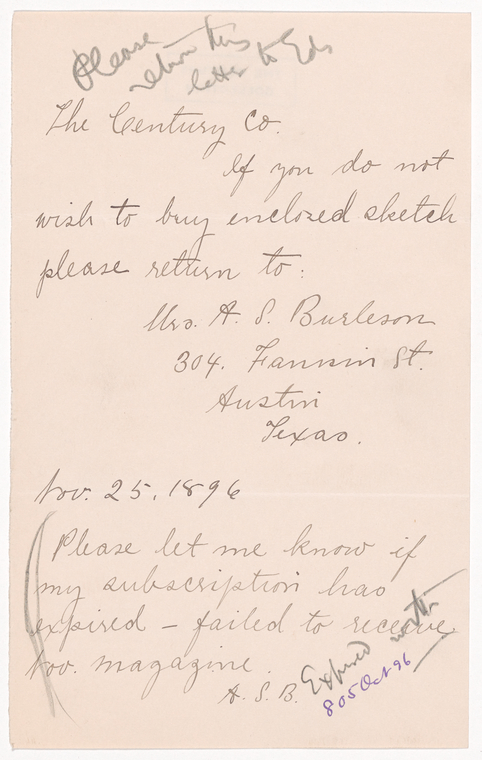 Please
return this
letter to Eds
The Century Co.
If you do not
wish to buy enclosed sketch
please return to:
Mrs. A. S. Burleson
304. Fannin St.
Austin
Texas.
Nov. 25, 1896
Please let me know if
my subscription has
expired – failed to receive
Nov. magazine.
A. S. B.
Expired with
805 Oct 96